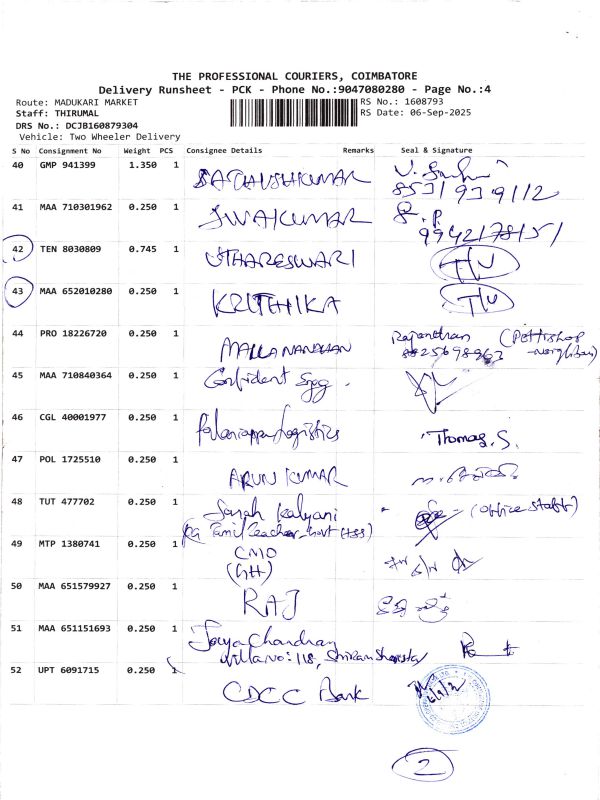 THE PROFESSIONAL COURIERS, COIMBATORE
Delivery Runsheet - PCK - Phone No.:9047080280 - Page No.:4
Route: MADUKARI MARKET RS No.: 1608793
Staff: THIRUMAL RS Date: 06-Sep-2025
DRS No.: DCJB160879304
Vehicle: Two Wheeler Delivery
S No Consignment No Weight PCS Consignee Details Remarks Seal & Signature
40 GMP 941399 1.350 1 SATHUSHKUMAR
8531939112
41 MAA 710301962 0.250 1 S.P.
9942178151
42 TEN 8030809 0.745 1 UTHARESWARI
43 MAA 652010280 0.250 1 KRITHIKA
44 PRO 18226720 0.250 1 Rajendran (Pettishop
45 MAA 710840364 0.250 1 Confident Engg
46 CGL 40001977 0.250 1 Palaniappa Logistics Thomas. S.
47 POL 1725510 0.250 1 ARUN KUMAR
48 TUT 477702 0.250 1 Kalyani (Office staff)
PG Tamil Teacher Govt HSS)
49 MTP 1380741 0.250 1 CMO
(GH)
50 MAA 651579927 0.250 1 RAJ
51 MAA 651151693 0.250 1 Jaya Chandran
Villa No: 118,
52 UPT 6091715 0.250 1 CDCC Bank
2